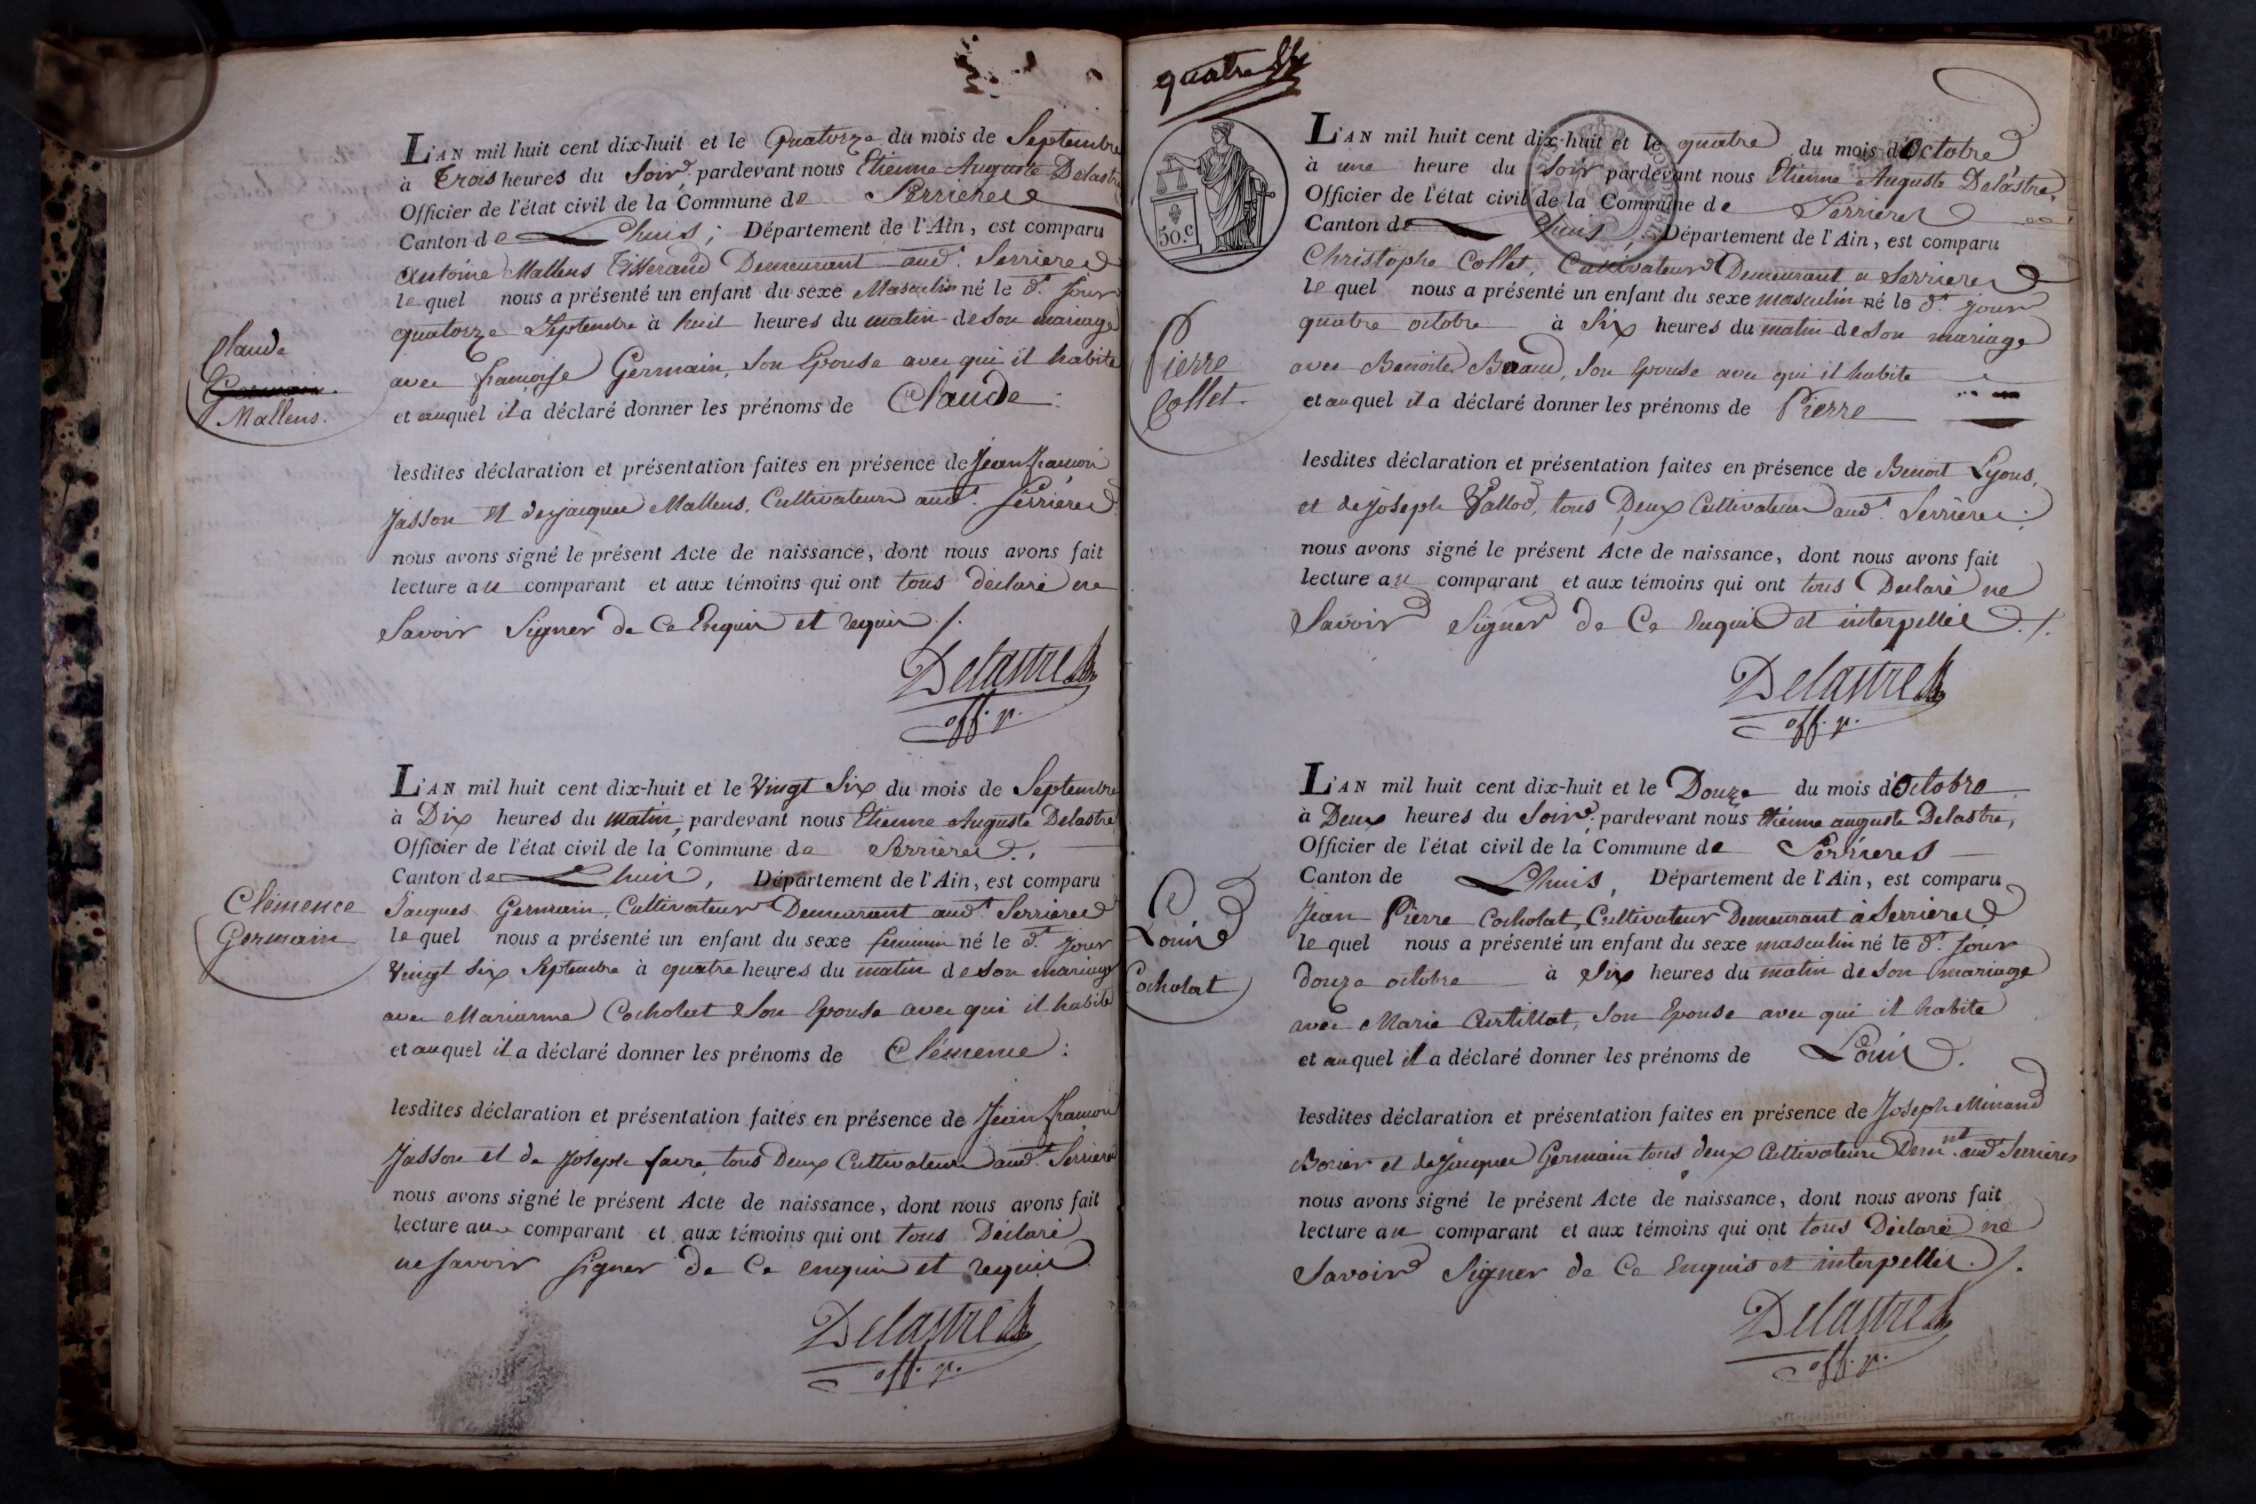 L'AN mil huit cent dix-huit et le Quatorze du mois de Septembre
à Trois heures du Soir, pardevant nous Etienne Auguste Delastre
Officier de l'état civil de la Commune de Serrieres
Canton de Lhuis; Département de l'Ain, est comparu
Antoine Mallens Tisserand Demeurant aud.t Serrieres
lequel nous a présenté un enfant du sexe Masculin né le d.t jour
quatorze Septembre à huit heures du matin de son mariage
avec françoise Germain, Son Epouse avec qui il habite
et auquel il a déclaré donner les prénoms de Claude:
Claude
Germain.
Mallens.
lesdites déclaration et présentation faites en présence de Jean françois
Jasson et de jacques Mallens, Cultivateurs aud.t Serrieres
nous avons signé le présent Acte de naissance, dont nous avons fait
lecture au comparant et aux témoins qui ont tous déclaré ne
Savoir Signer de Ce Enquis et requis ./.
Delastre
off. p.
L'AN mil huit cent dix-huit et le Vingt Six du mois de Septembre
à Dix heures du matin, pardevant nous Etienne Auguste Delastre
Officier de l'état civil de la Commune de Serrieres.
Canton de Lhuis, Département de l'Ain, est comparu
Jacques Germain, Cultivateur Demeurant aud.t Serrieres
lequel nous a présenté un enfant du sexe feminin né le d.t jour
Vingt Six Septembre à quatre heures du matin de son mariage
avec Marianne Cocholat Son Epouse avec qui il habite
et auquel il a déclaré donner les prénoms de Clémence:
Clémence
Germain
lesdites déclaration et présentation faites en présence de Jean françois
Jasson et de Joseph favre, tous Deux Cultivateurs aud.t Serrieres
nous avons signé le présent Acte de naissance, dont nous avons fait
lecture au comparant et aux témoins qui ont tous Déclaré
ne Savoir Signer de Ce enquis et requis
Delastre
off. p.
quatre
50.c
L'AN mil huit cent dix-huit et le quatre du mois d'Octobre
à une heure du Soir pardevant nous Etienne Auguste Delastre,
Officier de l'état civil de la Commune de Serrieres
Canton de Lhuis, Département de l'Ain, est comparu
Christophe Collet, Cultivateur Demeurant a Serrieres
lequel nous a présenté un enfant du sexe masculin né le d.t jour
quatre octobre à Six heures du matin de son mariage
avec Benoite Braud, Son Epouse avec qui il habite
et auquel il a déclaré donner les prénoms de Pierre
Pierre
Collet.
lesdites déclaration et présentation faites en présence de Benoit Lyons,
et de Joseph Vallod, tous Deux Cultivateurs aud.t Serrieres.
nous avons signé le présent Acte de naissance, dont nous avons fait
lecture au comparant et aux témoins qui ont tous Déclaré ne
Savoir Signer de Ce Enquis et interpellés ./.
Delastre
off. p.
L'AN mil huit cent dix-huit et le Douze du mois d'Octobre
à Deux heures du Soir, pardevant nous Etienne auguste Delastre,
Officier de l'état civil de la Commune de Serrieres
Canton de Lhuis, Département de l'Ain, est comparu
Jean Pierre Cocholat, Cultivateur Demeurant à Serrieres
lequel nous a présenté un enfant du sexe masculin né le d.t jour
douze octobre à Six heures du matin de son mariage
avec Marie Curtillat, Son Epouse avec qui il habite
et auquel il a déclaré donner les prénoms de Louis.
Louis
Cocholat
lesdites déclaration et présentation faites en présence de Joseph Minand
Borier et de Jacques Germain tous deux Cultivateurs Dem.nt aud.t Serrieres
nous avons signé le présent Acte de naissance, dont nous avons fait
lecture au comparant et aux témoins qui ont tous Déclaré ne
Savoir Signer de Ce Enquis et interpellés ./.
Delastre
off. p.